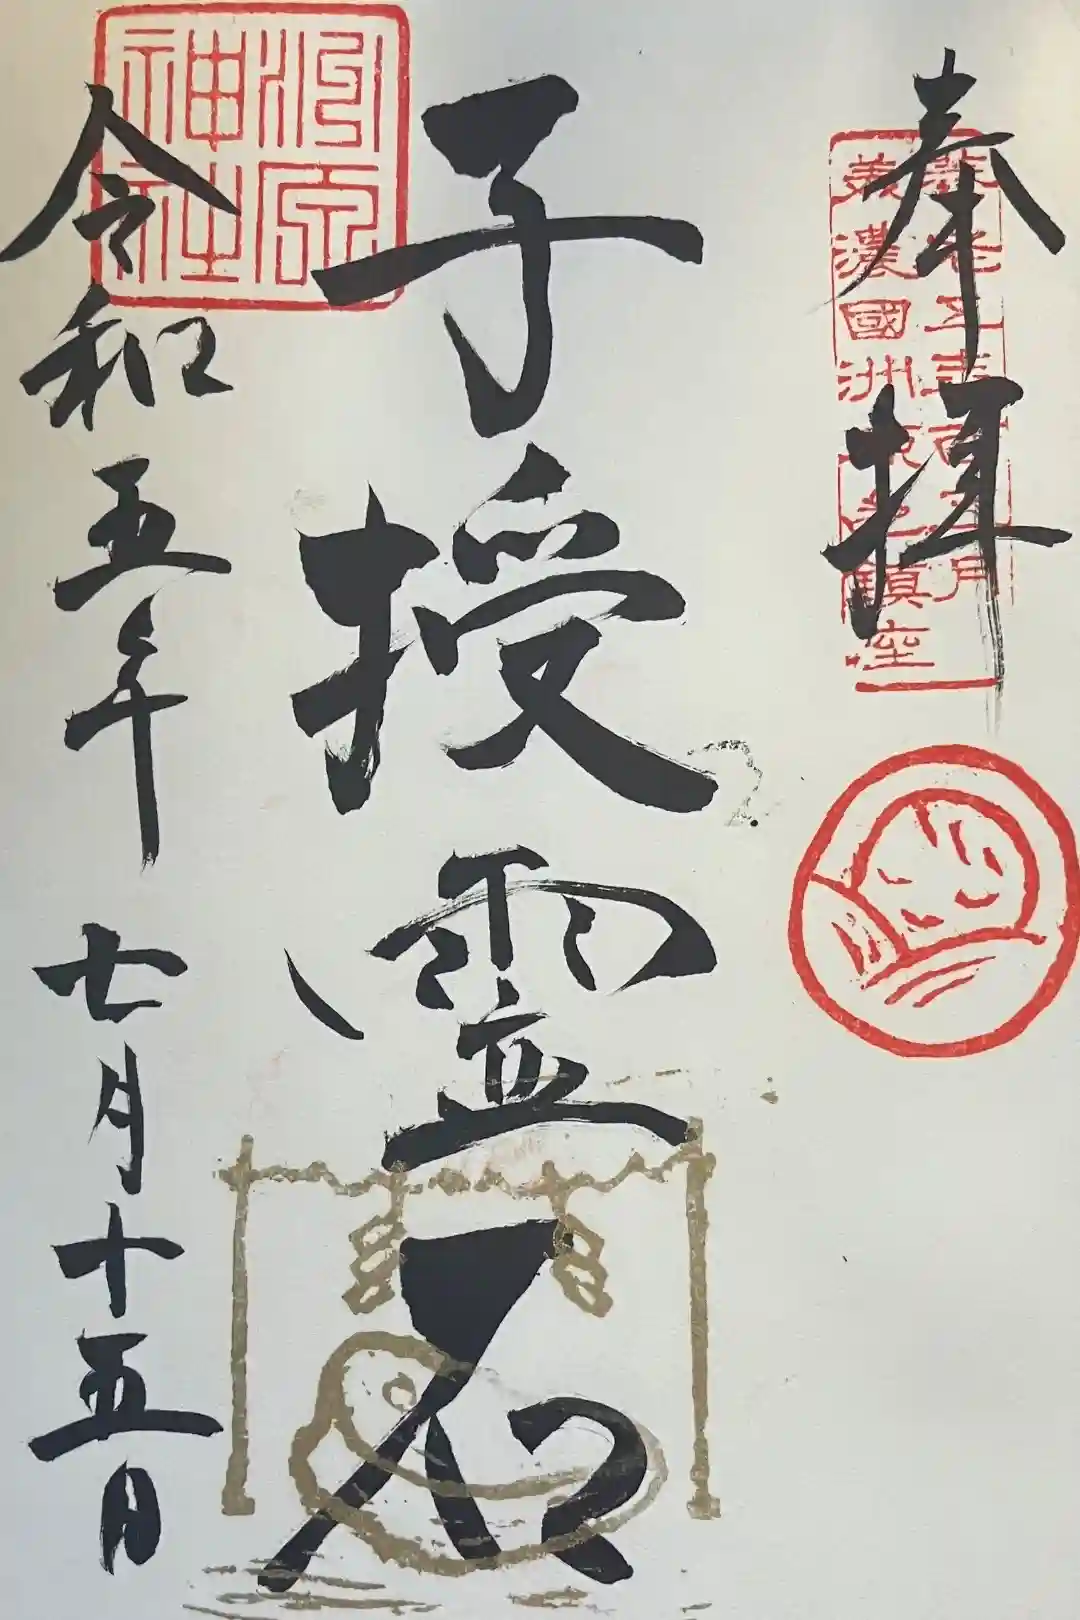 奉拝
美濃國洲原 鎮座
子授霊石
洲原
神社
令和五年 七月十五日